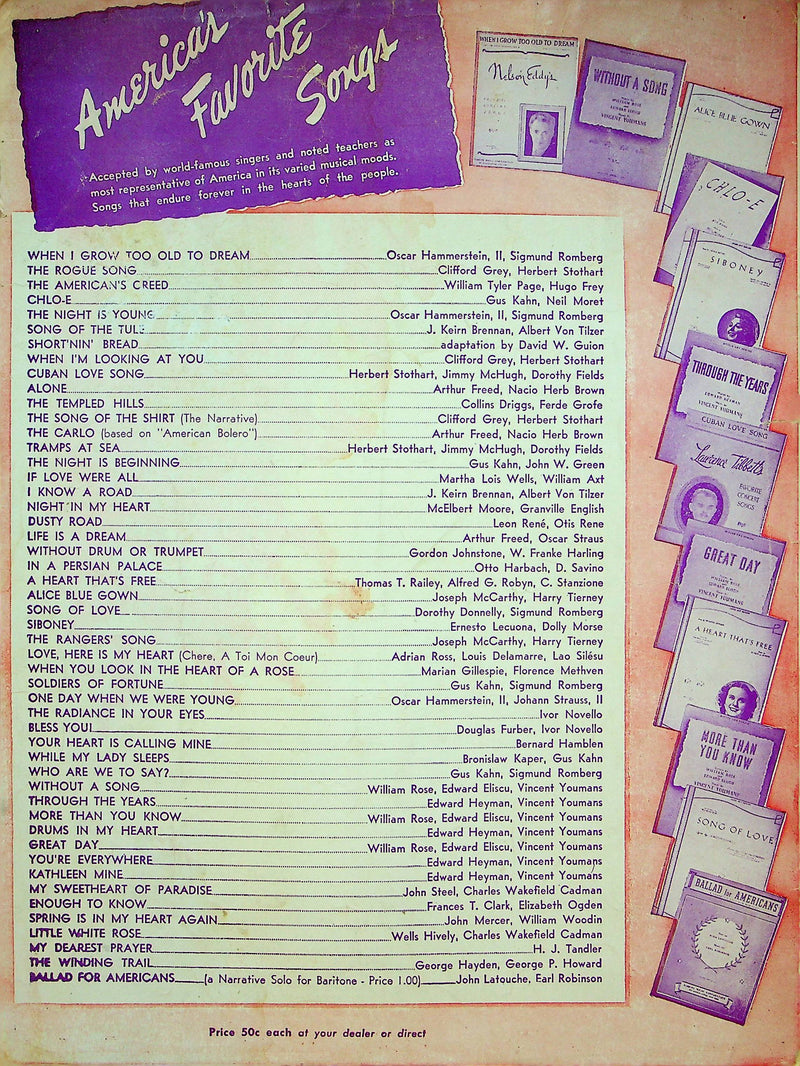 America's
Favorite
Songs
Accepted by world-famous singers and noted teachers as
most representative of America in its varied musical moods.
Songs that endure forever in the hearts of the people.
WHEN I GROW TOO OLD TO DREAM Oscar Hammerstein, II, Sigmund Romberg
THE ROGUE SONG Clifford Grey, Herbert Stothart
THE AMERICAN'S CREED William Tyler Page, Hugo Frey
CHLO-E Gus Kahn, Neil Moret
THE NIGHT IS YOUNG Oscar Hammerstein, II, Sigmund Romberg
SONG OF THE TULE J. Keirn Brennan, Albert Von Tilzer
SHORT'NIN' BREAD adaptation by David W. Guion
WHEN I'M LOOKING AT YOU Clifford Grey, Herbert Stothart
CUBAN LOVE SONG Herbert Stothart, Jimmy McHugh, Dorothy Fields
ALONE Arthur Freed, Nacio Herb Brown
THE TEMPLED HILLS Collins Driggs, Ferde Grofe
THE SONG OF THE SHIRT (The Narrative) Clifford Grey, Herbert Stothart
THE CARLO (based on "American Bolero") Arthur Freed, Nacio Herb Brown
TRAMPS AT SEA Herbert Stothart, Jimmy McHugh, Dorothy Fields
THE NIGHT IS BEGINNING Gus Kahn, John W. Green
IF LOVE WERE ALL Martha Lois Wells, William Axt
I KNOW A ROAD J. Keirn Brennan, Albert Von Tilzer
NIGHT IN MY HEART McElbert Moore, Granville English
DUSTY ROAD Leon René, Otis Rene
LIFE IS A DREAM Arthur Freed, Oscar Straus
WITHOUT DRUM OR TRUMPET Gordon Johnstone, W. Franke Harling
IN A PERSIAN PALACE Otto Harbach, D. Savino
A HEART THAT'S FREE Thomas T. Railey, Alfred G. Robyn, C. Stanzione
ALICE BLUE GOWN Joseph McCarthy, Harry Tierney
SONG OF LOVE Dorothy Donnelly, Sigmund Romberg
SIBONEY Ernesto Lecuona, Dolly Morse
THE RANGERS' SONG Joseph McCarthy, Harry Tierney
LOVE, HERE IS MY HEART (Chere, A Toi Mon Coeur) Adrian Ross, Louis Delamarre, Lao Silésu
WHEN YOU LOOK IN THE HEART OF A ROSE Marian Gillespie, Florence Methven
SOLDIERS OF FORTUNE Gus Kahn, Sigmund Romberg
ONE DAY WHEN WE WERE YOUNG Oscar Hammerstein, II, Johann Strauss, II
THE RADIANCE IN YOUR EYES Ivor Novello
BLESS YOU! Douglas Furber, Ivor Novello
YOUR HEART IS CALLING MINE Bernard Hamblen
WHILE MY LADY SLEEPS Bronislaw Kaper, Gus Kahn
WHO ARE WE TO SAY? Gus Kahn, Sigmund Romberg
WITHOUT A SONG William Rose, Edward Eliscu, Vincent Youmans
THROUGH THE YEARS Edward Heyman, Vincent Youmans
MORE THAN YOU KNOW William Rose, Edward Eliscu, Vincent Youmans
DRUMS IN MY HEART Edward Heyman, Vincent Youmans
GREAT DAY William Rose, Edward Eliscu, Vincent Youmans
YOU'RE EVERYWHERE Edward Heyman, Vincent Youmans
KATHLEEN MINE Edward Heyman, Vincent Youmans
MY SWEETHEART OF PARADISE John Steel, Charles Wakefield Cadman
ENOUGH TO KNOW Frances T. Clark, Elizabeth Ogden
SPRING IS IN MY HEART AGAIN John Mercer, William Woodin
LITTLE WHITE ROSE Wells Hively, Charles Wakefield Cadman
MY DEAREST PRAYER H. J. Tandler
THE WINDING TRAIL George Hayden, George P. Howard
BALLAD FOR AMERICANS (a Narrative Solo for Baritone - Price 1.00) John Latouche, Earl Robinson
Price 50c each at your dealer or direct
WHEN I GROW TOO OLD TO DREAM
Nelson Eddy's
WITHOUT A SONG
WILLIAM ROSE
VINCENT YOUMANS
ALICE BLUE GOWN
CHLO-E
SIBONEY
THROUGH THE YEARS
EDWARD HEYMAN
VINCENT YOUMANS
CUBAN LOVE SONG
Lawrence Tibbett's
FAVORITE
CONCERT
SONGS
GREAT DAY
WILLIAM ROSE
VINCENT YOUMANS
A HEART THAT'S FREE
MORE THAN
YOU KNOW
WILLIAM ROSE
VINCENT YOUMANS
SONG OF LOVE
BALLAD for AMERICANS